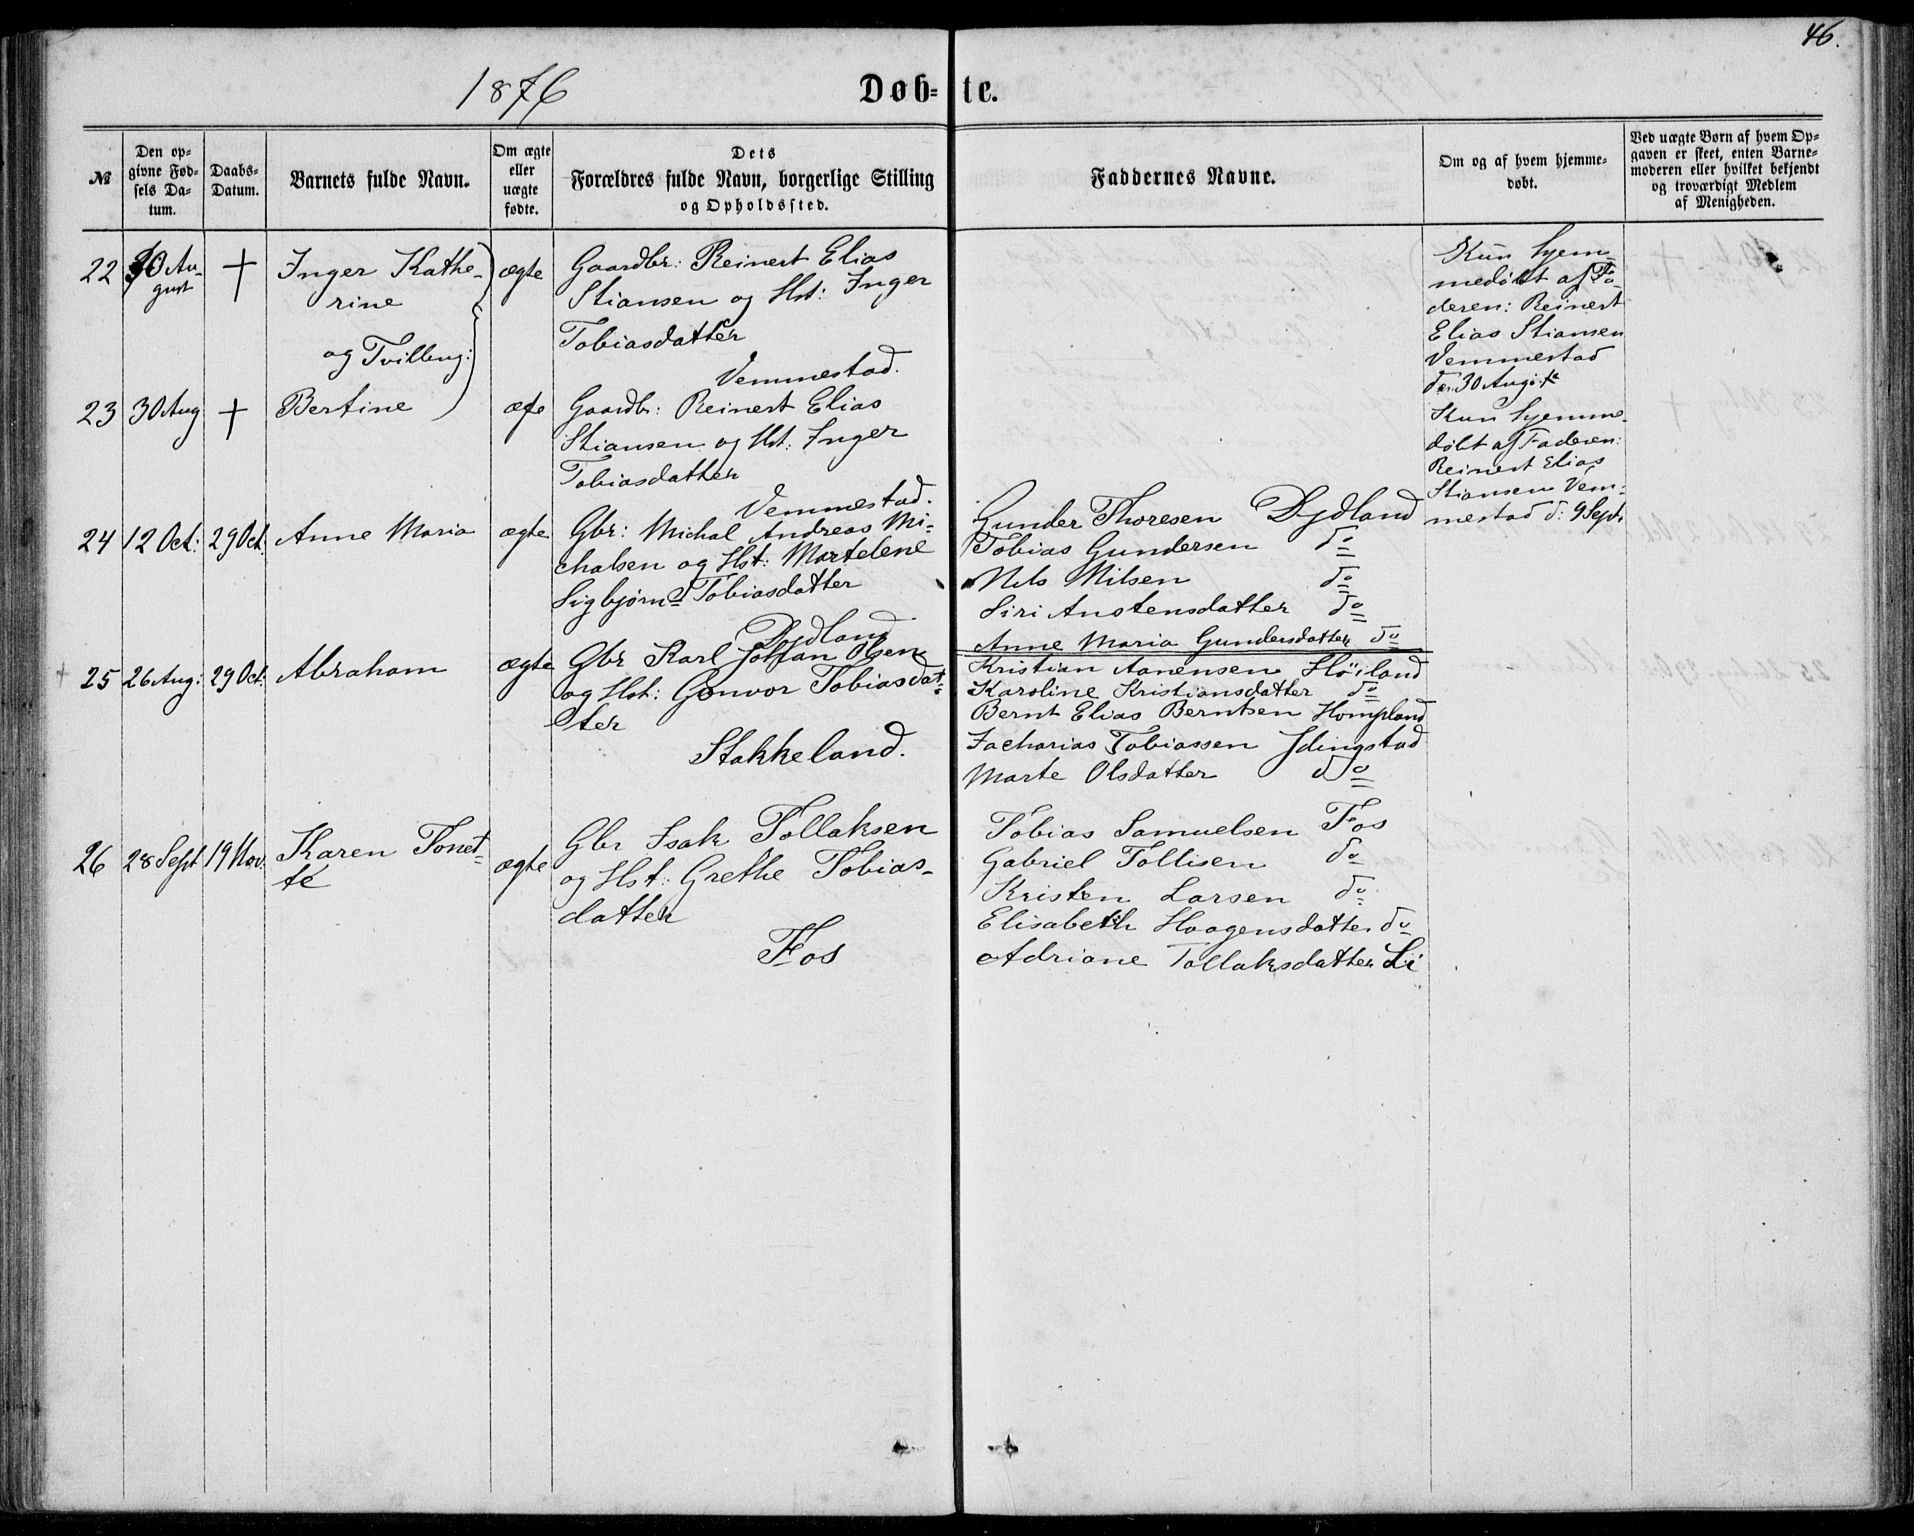 46.
1876
Døb-te.
№
Den op-
givne Fød-
sels Da-
tum.
Daabs-
Datum.
Barnets fulde Navn.
Om ægte
eller
uægte
fødte.
Dets
Forældres fulde Navn, borgerlige Stilling
og Opholdssted.
Faddernes Navne.
Om og af hvem hjemme-
døbt.
Ved uægte Børn af hvem Op-
gaven er skeet, enten Barne-
moderen eller hvilket bekjendt
og troværdigt Medlem
af Menigheden.
22
30 Au-
gust
†
Inger Kathe-
rine
og Tvilling:
ægte
Gaardbr: Reinert Elias
Stiansen og Hst: Inger
Tobiasdatter
Vemmestad.
Kun hjem-
medøbt af Fa-
deren: Reinert
Elias Stiansen
Vemmestad
den 30 Aug:
23
30 Aug
†
Bertine
Gaardb: Reinert Elias
Stiansen og Hst: Inger
Tobiasdatter
Vemmestad.
Kun hjemme-
døbt af Faderen:
Reinert Elias
Stiansen Vem-
mestad d: 9 Sept.
24
12 Oct:
29 Oct.
Anne Maria
ægte
Gbr: Michal Andreas Mi-
chalsen og Hst: Martelene
Sigbjørn= Tobiasdatter
Dydland
Gunder Thoresen Dydland
Tobias Gundersen do
Nils Nilsen do
Siri Anstensdatter do
Anne Maria Gundersdatter do
25
26 Aug:
29 Oct.
Abraham
ægte
Gbr Karl Johan Olsen
og Hst: Gonvor Tobiasdat-
ter
Stakkeland.
Kristian Aanensen Høiland
Karoline Kristiansdatter do
Bernt Elias Berntsen Hompland
Zacharias Tobiassen Idingstad
Marte Olsdatter do
26
28 Sept
19 Nov.
Karen Tonet-
te
ægte
Gbr Isak Tollaksen
og Hst: Grethe Tobias-
datter
Fos
Tobias Samuelsen Fos
Gabriel Tollisen do
Kristen Larsen do
Elisabeth Haagensdatter do
Adriane Tollaksdatter Li